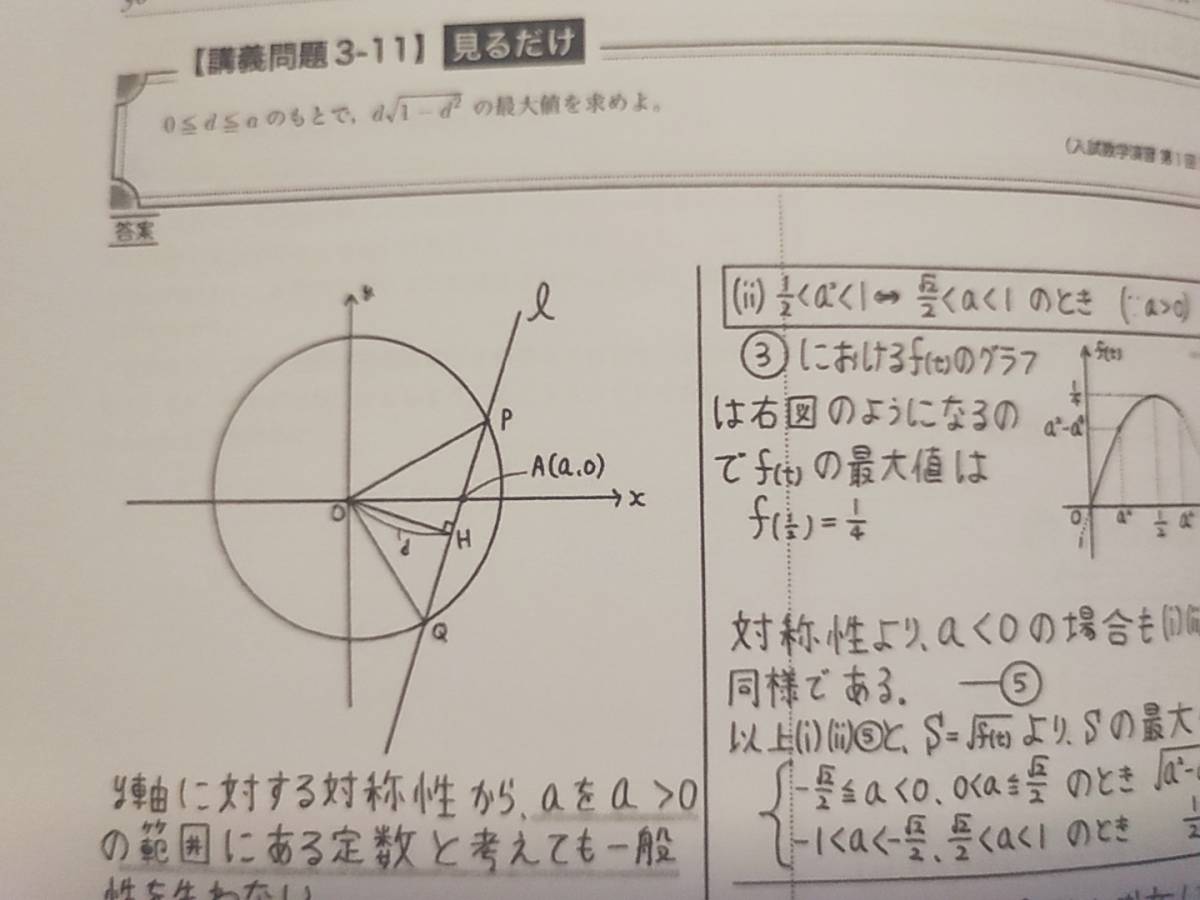 【講義問題3-11】 見るだけ
0≦d≦aのもとで、d√1-d² の最大値を求めよ。
(入試数学演習 第1回
答案
l
P
A(a,0)
x
O
d
H
Q
y軸に対する対称性から、aをa>0
の範囲にある定数と考えても一般
性を失わない
(ii) 1/2<a²<1⇔√2/2<a<1 のとき (∵a>0)
③におけるf(t)のグラフ
は右図のようになるの
でf(t)の最大値は
f(1/2)=1/4
f(t)
1/4
0
a²
1/2
a²
対称性より、a<0の場合も(i)(ii
同様である。 ―⑤
以上(i)(ii)⑤と、S=√f(t)より、Sの最大
-√2/2≦a<0、0<a≦√2/2 のとき
-1<a<-√2/2、√2/2<a<1 のとき 1/2